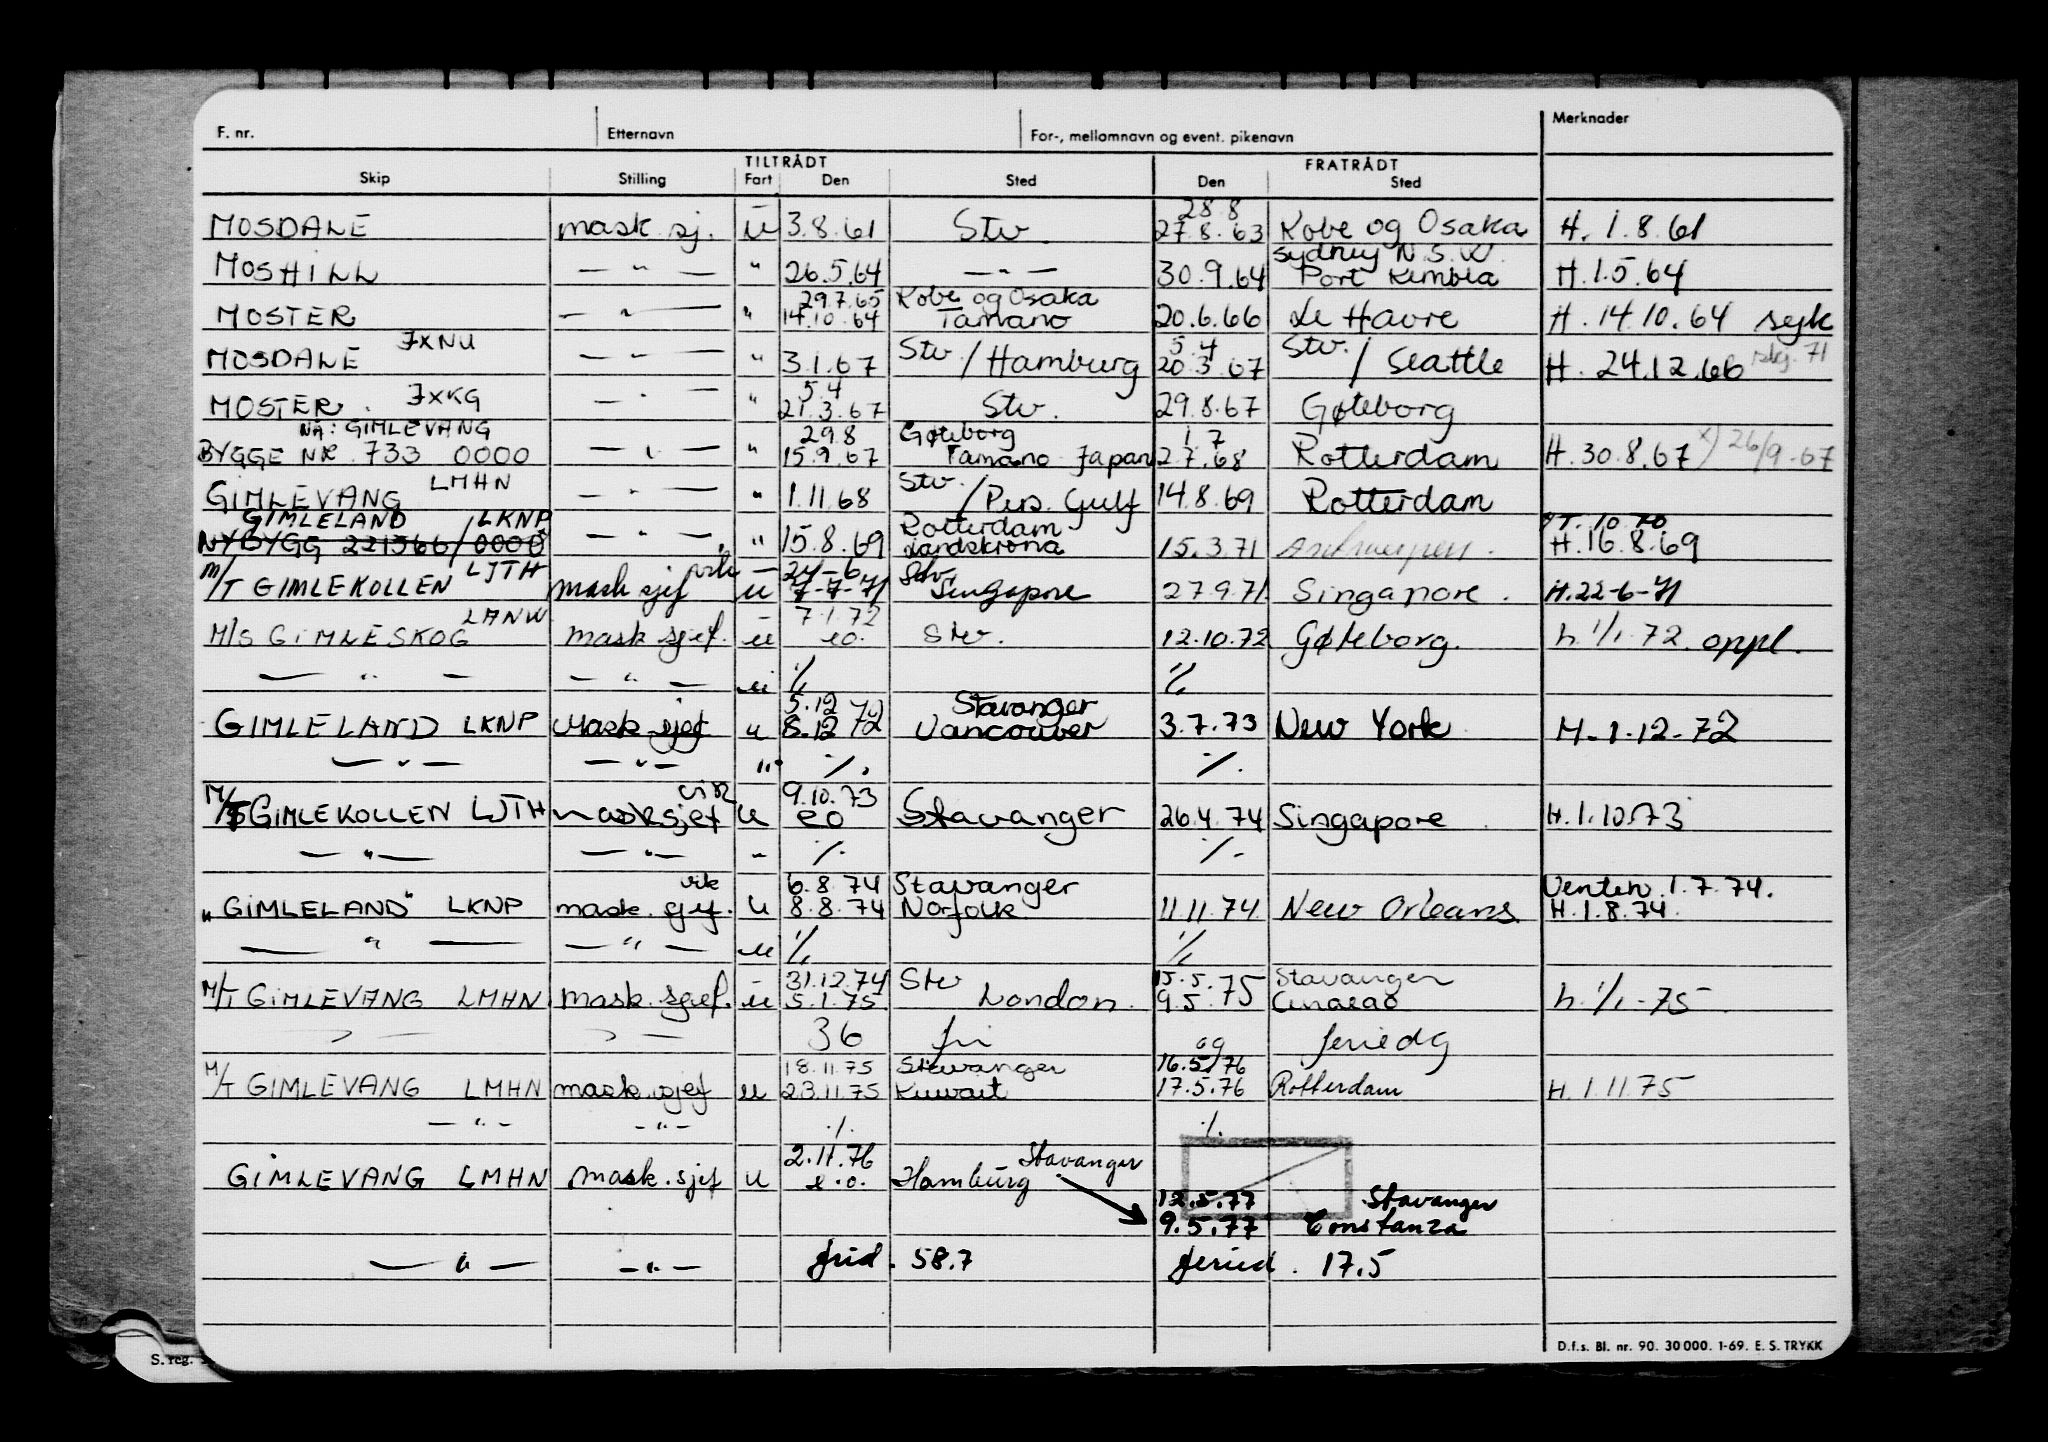 F. nr. Etternavn For-, mellomnavn og event. pikenavn Merknader
TILTRÅDT FRATRÅDT
Skip Stilling Fart Den Sted Den Sted
28.8
MOSDALE mask.sj. u 3.8.61 Stv 27.8.63 Kobe og Osaka H. 1.8.61
Sydney N.S.W.
MOSHILL — " — " 26.5.64 — " — 30.9.64 Port Kembla H.1.5.64
29.7.65 Kobe og Osaka
MOSTER — " — " 14.10.64 Tamano 20.6.66 Le Havre H. 14.10.64 syk
JXNU Stv. 5.4 Stv.
MOSDALE — " — " 3.1.67 / Hamburg 20.3.67 / Seattle H. 24.12.66 71
JXKG 5.4
MOSTER. — " — " 21.3.67 Stv. 29.8.67 Gøteborg
NÅ: GIMLEVANG 29.8 Gøteborg 1.7
BYGGE NR. 733 0000 — " — " 15.9.67 Tamano Japan 2.7.68 Rotterdam H.30.8.67 x) 26/9.67
LMHN Stv.
GIMLEVANG — " — " 1.11.68 / Pers. Gulf 14.8.69 Rotterdam
GIMLELAND / LKNP Rotterdam 10.70
NYBYGG 221566/0000 — " — " 15.8.69 Landskrona 15.3.71 Antwerpen. H.16.8.69
LJTH vik 24-6 Stv.
M/T GIMLEKOLLEN mask sjef u 7-7-71 Singapore 27.9.71 Singapore. H.22-6-71
LANW 7.1.72
M/S GIMLESKOG mask.sjef. u eo. Stv. 12.10.72 Gøteborg. h. 1/1.72. oppl.
— " — — " — u % %
5.12 72 Stavanger
GIMLELAND LKNP Mask.sjef u 8.12 72 Vancouver 3.7.73 New York H.1.12.72
— " — — " — " %. %.
vik 9.10.73
M/T GIMLEKOLLEN LJTH masksjef u eo Stavanger 26.4.74 Singapore H.1.10.73
— " — — " — " %. %.
vik 6.8.74 Stavanger Venten 1.7.74.
"GIMLELAND" LKNP mask.sjef. u 8.8.74 Norfolk 11.11.74 New Orleans H.1.8.74.
— " — — " — u % %
31.12.74 Stv 15.5.75 Stavanger
M/T GIMLEVANG LMHN mask.sjef. u 5.1.75 London. 9.5.75 Curacao h. 1/1-75
" — " — 36 fri og feriedg
18.11.75 Stavanger 16.5.76
M/T GIMLEVANG LMHN mask.sjef u 23.11.75 Kuwait 17.5.76 Rotterdam H.1.11.75
— " — — " — %. %.
2.11.76 Stavanger
GIMLEVANG LMHN mask.sjef u e.o. Hamburg
12.5.77 Stavanger
9.5.77 Constanza
— " — — " — frid. 58.7 feried. 17.5
D.f.s. Bl. nr. 90. 30 000. 1-69. E. S. TRYKK
S. reg.